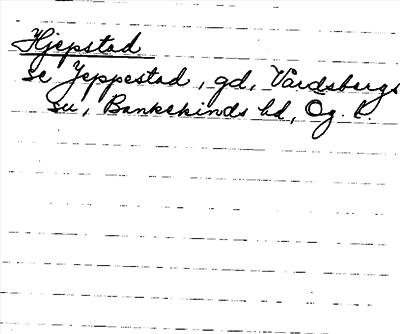 Hjepstad
se Jeppestad, gd, Vårdsbergs
su, Bankekinds hd, Ög. l.